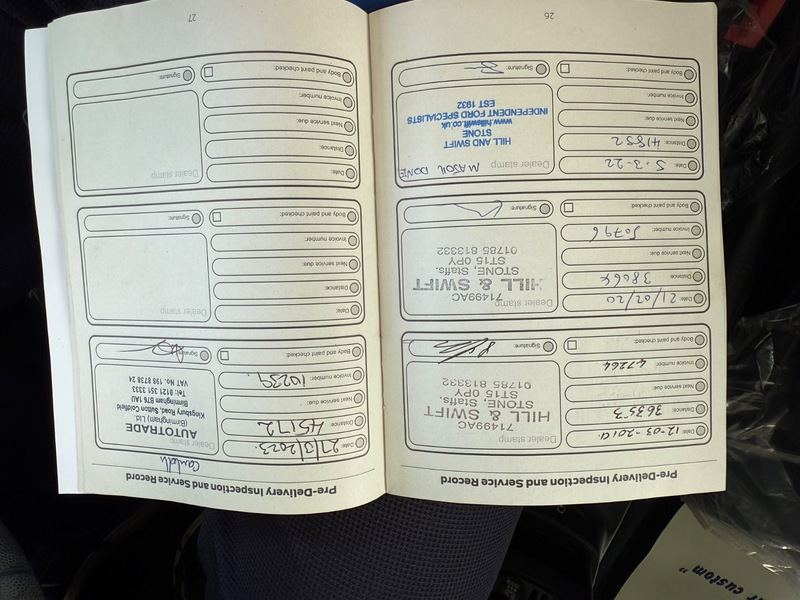 Pre-Delivery Inspection and Service Record
Date: 12-03-2019
Distance: 36353
Next service due:
Invoice number: 47264
Body and paint checked:
Dealer stamp
71499AC
HILL & SWIFT
STONE, Staffs.
ST15 0PY
01785 813332
Signature:
Date: 21/02/20
Distance: 38064
Next service due:
Invoice number: 50796
Body and paint checked:
Dealer stamp
71499AC
HILL & SWIFT
STONE, Staffs.
ST15 0PY
01785 813332
Signature:
Date: 5-3-22
Distance: 41852
Next service due:
Invoice number:
Body and paint checked:
Dealer stamp
MAJOR DONE
HILL AND SWIFT
STONE
www.hillswift.co.uk
INDEPENDENT FORD SPECIALISTS
EST 1932
Signature:
26
Pre-Delivery Inspection and Service Record
Date: 27/3/2023
Distance: 45172
Next service due:
Invoice number: 10239
Body and paint checked:
Dealer stamp
AUTOTRADE
(Birmingham) Ltd
Kingsbury Road, Sutton Coldfield
Birmingham B76 1AU
Tel: 0121 351 3333
VAT No. 198 8738 24
Signature:
Date:
Distance:
Next service due:
Invoice number:
Body and paint checked:
Dealer stamp
Signature:
Date:
Distance:
Next service due:
Invoice number:
Body and paint checked:
Dealer stamp
Signature:
27
custom"